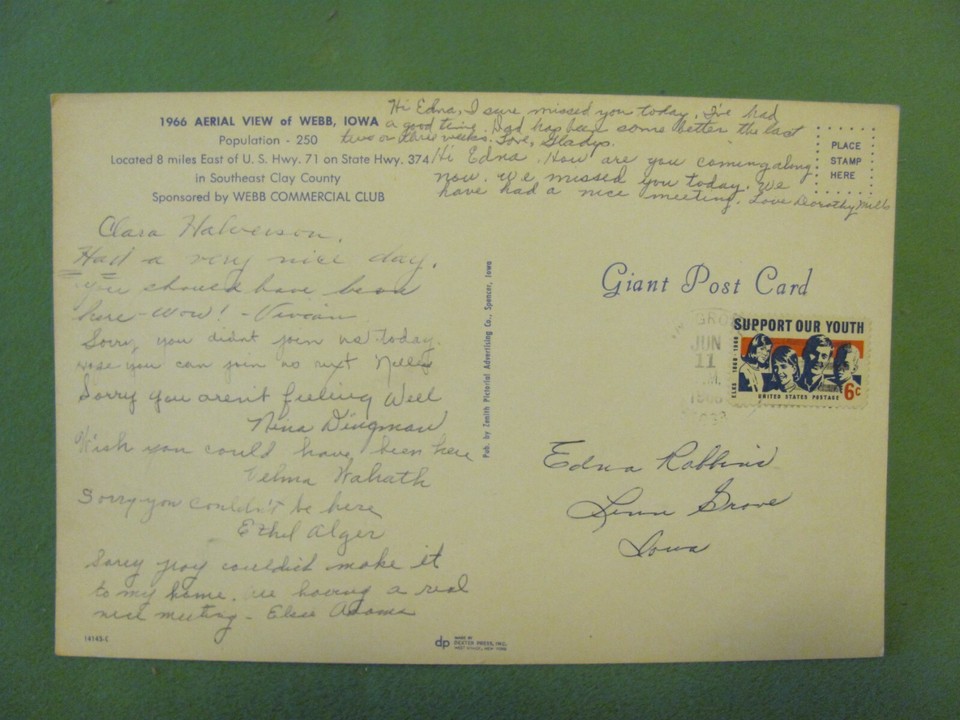 1966 AERIAL VIEW of WEBB, IOWA
Population - 250
Located 8 miles East of U. S. Hwy. 71 on State Hwy. 374
in Southeast Clay County
Sponsored by WEBB COMMERCIAL CLUB
Hi Edna, I sure missed you today. I've had
a good time. Dad has been some better the last
two or three weeks. Love, Gladys.
Hi Edna. How are you coming along
now. We missed you today. We
have had a nice meeting. Love Dorothy Mills
PLACE
STAMP
HERE
Clara Halverson.
Had a very nice day.
You should have been
here - Wow! - Vivian
Sorry you didnt join us today.
you can join us next
Sorry you aren't feeling Well
Nina Dingman
Wish you could have been here
Velma Walrath
Sorry you couldn't be here
Ethel Alger
Sorry you couldish make it
to my home. We having a real
nice meeting - Elsie Adams
14143-C
Pub. by Zenith Pictorial Advertising Co., Spencer, Iowa
dp MADE BY
DEXTER PRESS, INC.
WEST NYACK, NEW YORK
Giant Post Card
GRO
JUN
11
SUPPORT OUR YOUTH
ELKS · 1868 · 1968
UNITED STATES POSTAGE 6c
Edna Robbins
Linn Grove
Iowa